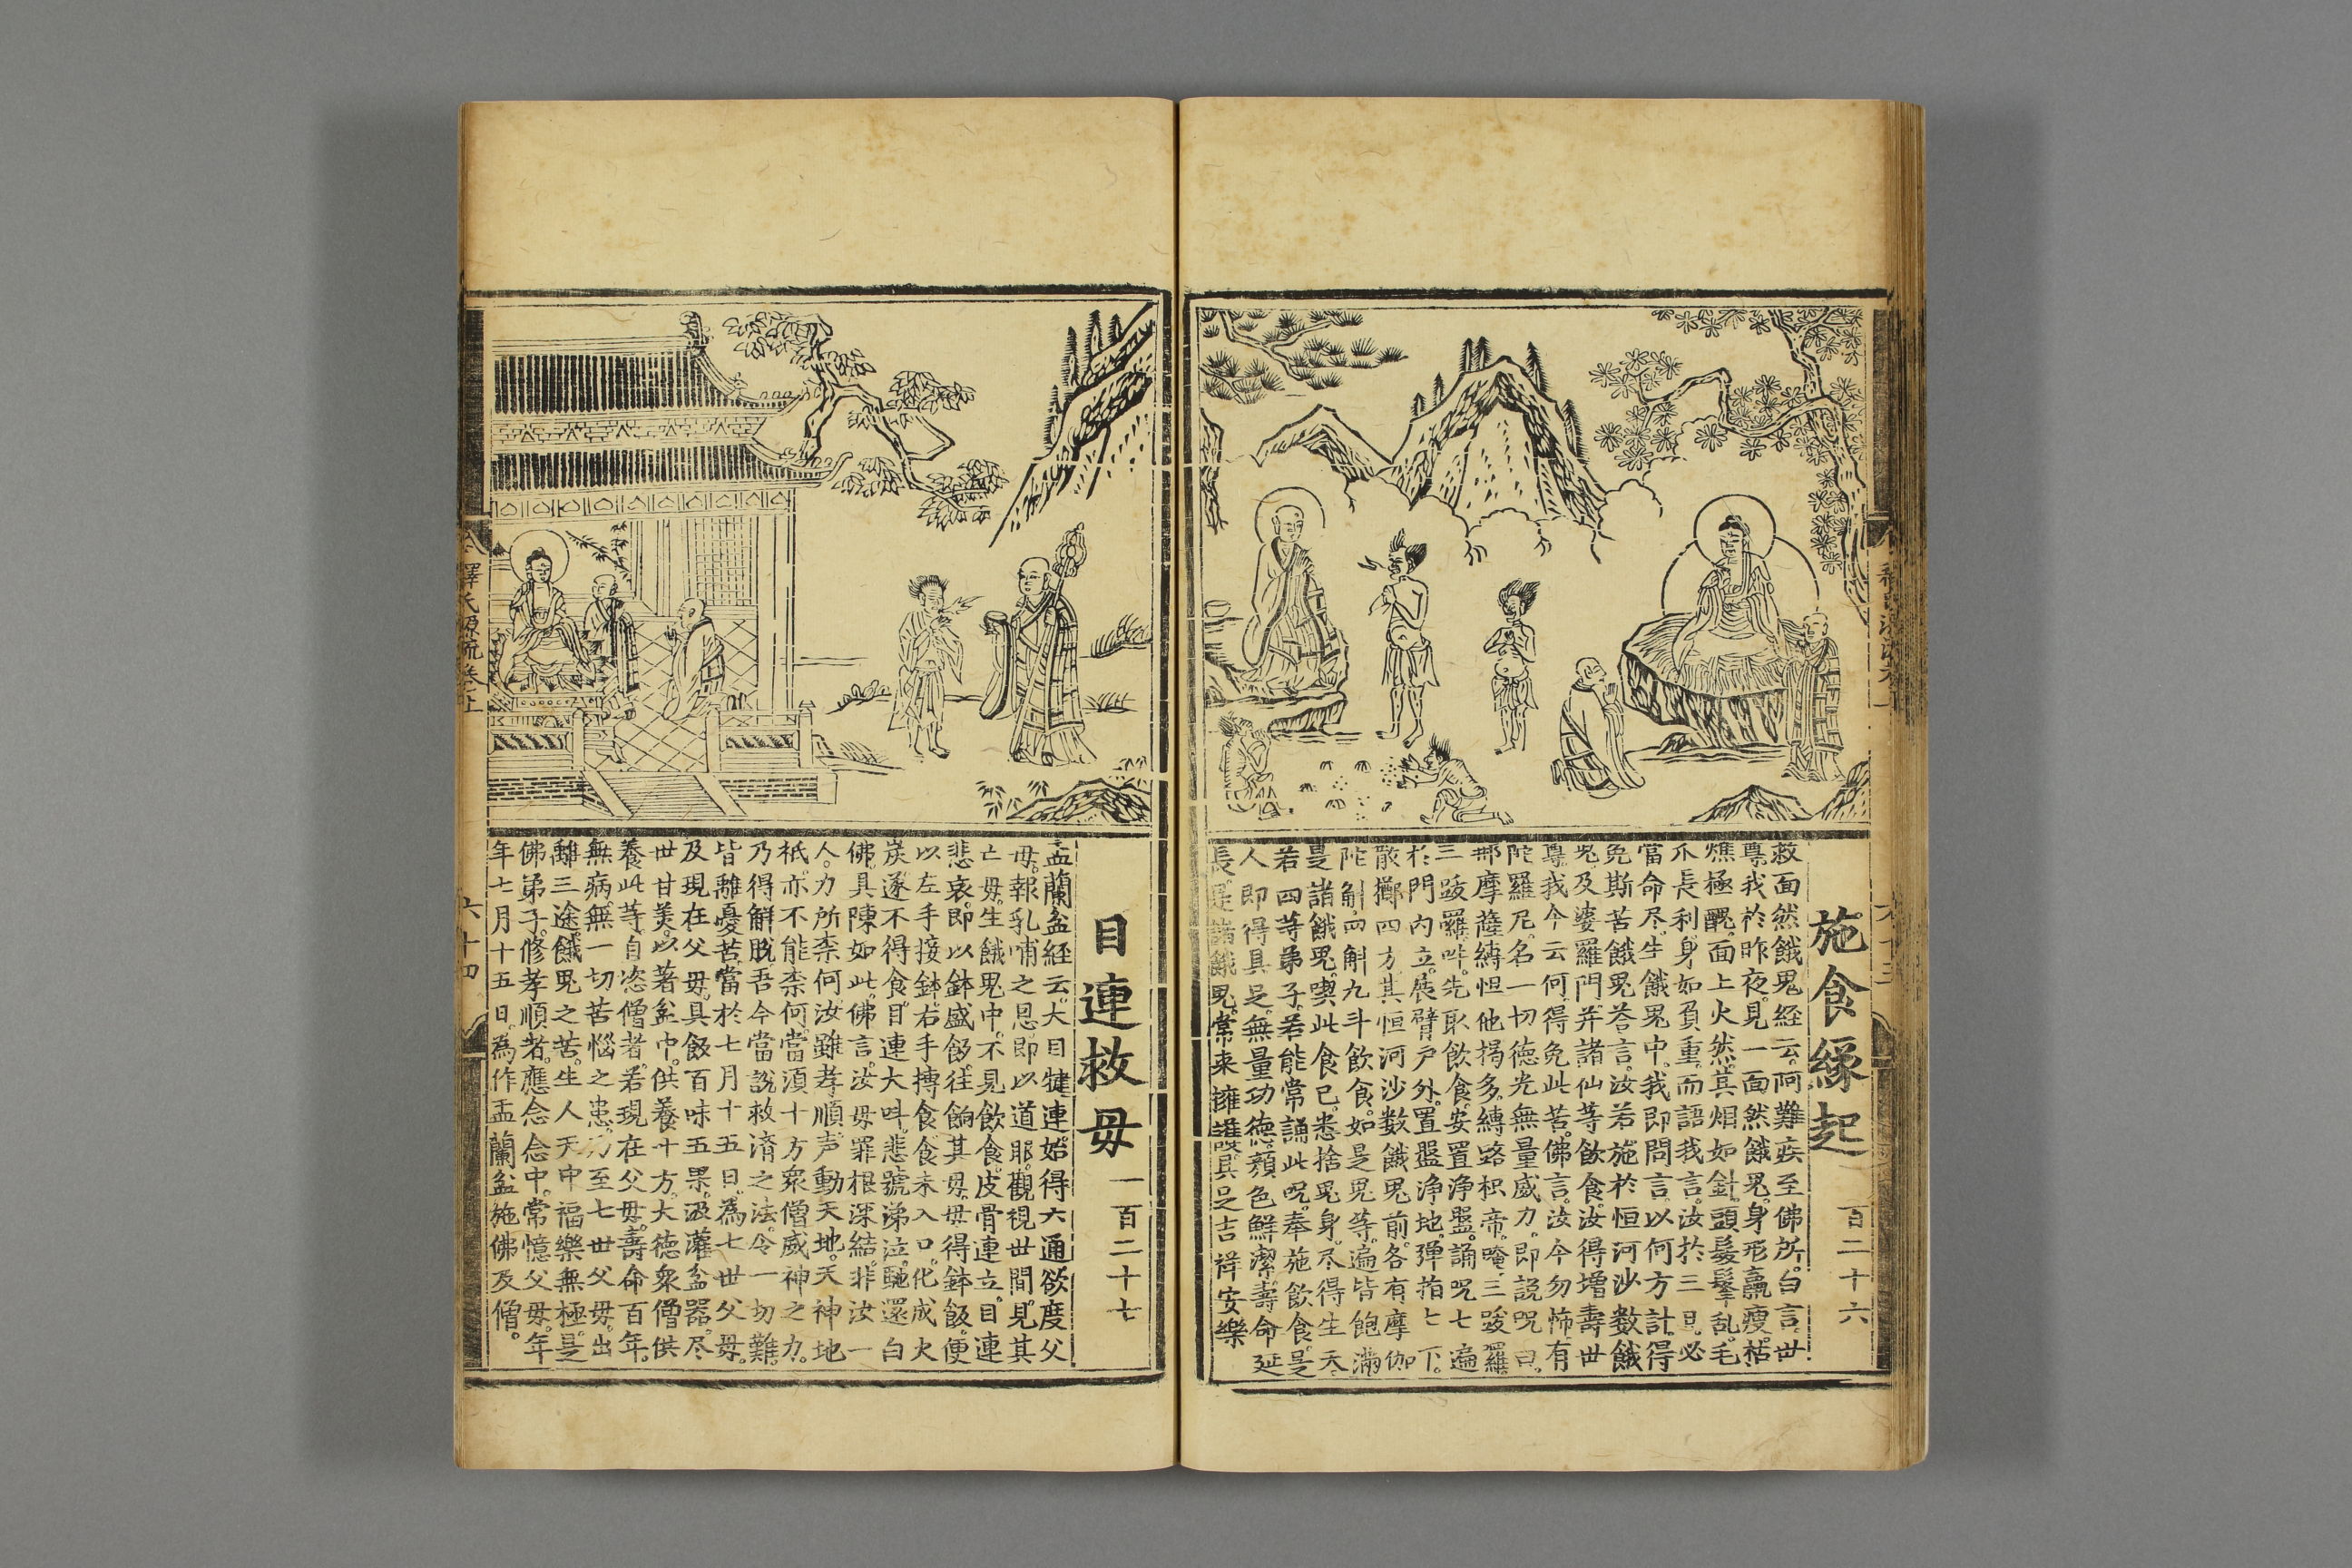 施食緣起 一百二十六
救面然餓鬼經云。阿難疾至佛所。白言。世
尊。我於昨夜。見一面然餓鬼。身形羸瘦。枯
燋極醜。面上火然。其烟如針。頭髮髼乱。毛
爪長利。身如負重。而語我言。汝於三日。必
當命尽。生餓鬼中。我即問言。以何方計。得
免斯苦。餓鬼答言。汝若施於恒河沙数餓
鬼。及婆羅門。并諸仙等飲食。汝得增壽。世
尊。我今云何。得免此苦。佛言。汝今勿怖。有
陀羅尼。名一切德光無量威力。即說呪曰。
那摩薩縛怛他揭多。縛路枳帝。唵。三跋羅
三跋羅。吽。先取飲食。安置淨盤。誦呪七遍。
於門內立。展臂戶外。置盤淨地。彈指七下。
散擲四方。其恒河沙数餓鬼前。各有摩伽
陀斛。四斛九斗飲食。如是鬼等。遍皆飽滿。
是諸餓鬼。喫此食已。悉捨鬼身。尽得生天。
若四等弟子。若能常誦此呪。奉施飲食。是
人即得具足。無量功德。顏色鮮潔。壽命延
長。是諸餓鬼。常来擁護。其足吉祥安樂
目連救毋 一百二十七
盂蘭盆經云。大目犍連。始得六通。欲度父
毋。報乳哺之恩。即以道眼。觀視世間。見其
亡毋。生餓鬼中。不見飲食。皮骨連立。目連
悲哀。即以鉢盛飯。往餉其毋。毋得鉢飯。便
以左手接鉢。右手摶食。食未入口。化成火
炭。遂不得食。目連大叫。悲號涕泣。馳還白
佛。具陳如此。佛言。汝毋罪根深結。非汝一
人。力所柰何。汝雖孝順。声動天地。天神地
祇。亦不能柰何。當須十方眾僧威神之力。
乃得解脫。吾今當說救濟之法。令一切難。
皆離憂苦。當於七月十五日。為七世父毋。
及現在父毋。具飯百味五果。汲灌盆器。尽
世甘美。以著盆中。供養十方。大德眾僧。供
養此等自恣僧者。若現在父毋。壽命百年。
無病。無一切苦惱之患。乃至七世父毋。出
離三途。餓鬼之苦。生人天中。福樂無極。是
佛弟子。修孝順者。應念念中。常憶父毋。年
年七月十五日。為作盂蘭盆。施佛及僧。
釋氏源流卷上
六十四